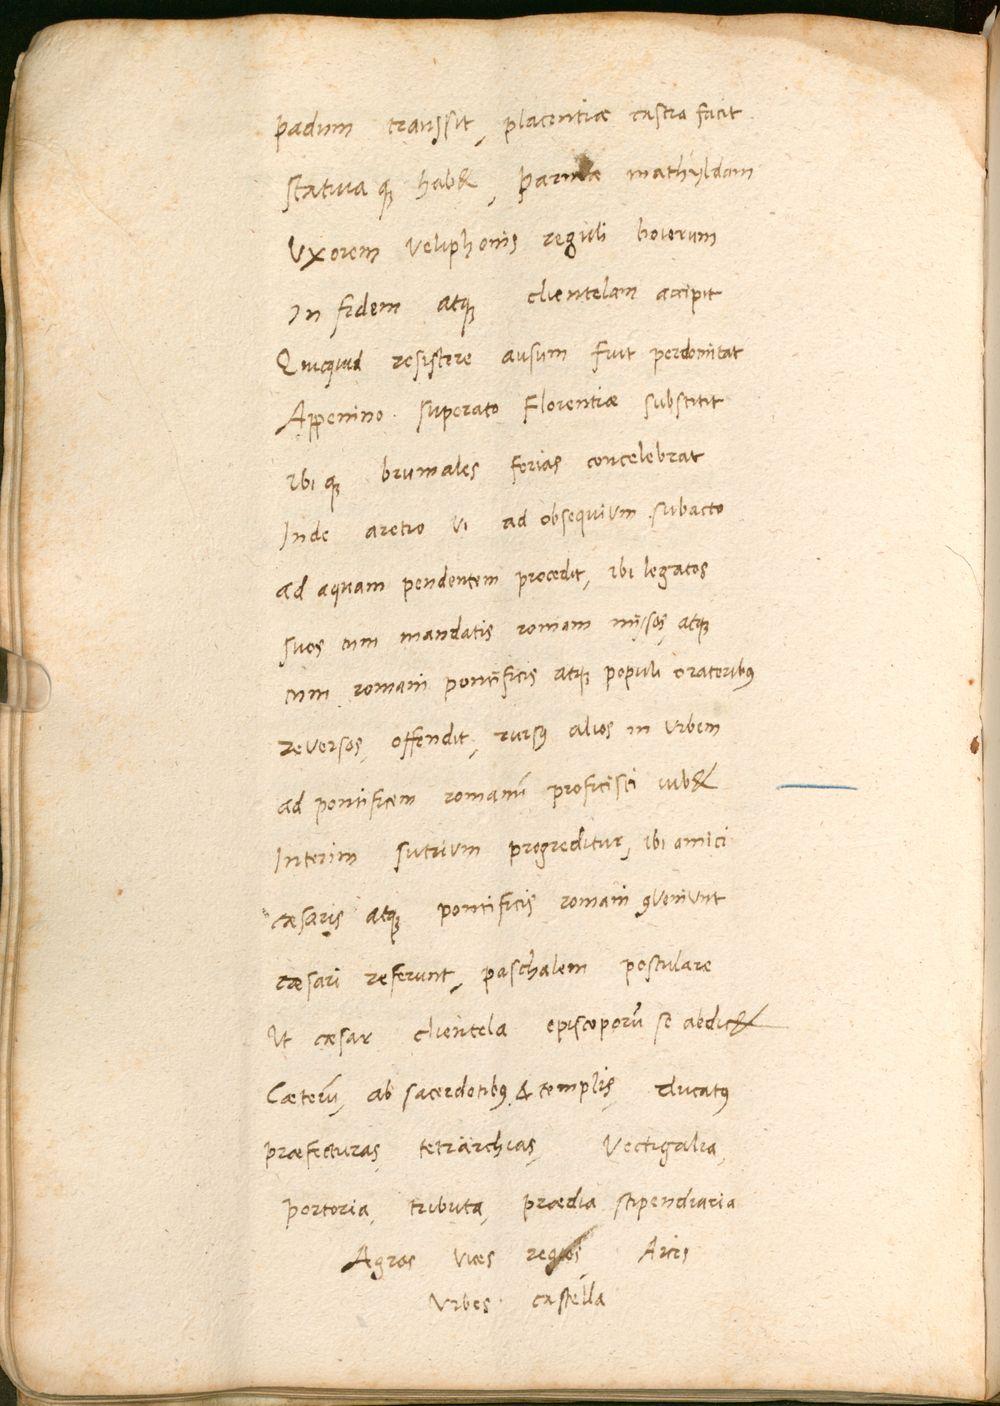 padum transsit, placentiæ castra facit
statiua q; hab&, parmæ mathyldam
Vxorem Veliphonis reguli boiorum
In fidem atq; clientelam accipit
Quicquid resistere ausum fuit perdomitat
Appenino superato Florentiæ substitit
ibi q; brumales ferias concelebrat
Inde aretio vi ad obsequium subacto
ad aquam pendentem procedit, ibi legatos
suos cum mandatis romam missos, atq;
cum romani pontificis atq; populi oratoribꝰ
reuersos, offendit, rursꝰ alios in vrbem
ad pontificem romanū proficisci iub&
Interim sutrium progreditur, ibi amici
cæsaris atq; pontificis romani ꝯueniunt
cæsari referunt, paschalem postulare
Vt cæsar clientela episcoporū se abdic&
Cæterū, ab sacerdotibꝰ & templis, ducatꝰ
præfecturas, tetrarchias, Vectigalia,
portoria, tributa, prædia stipendiaria
Agros vias regios, Arcis
Vrbes castella